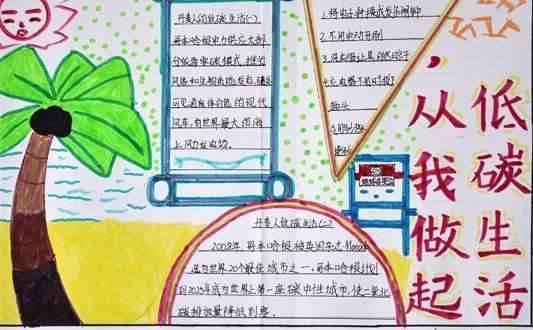 低碳生活
，从我做起
丹麦人的低碳生活(一)
哥本哈根电力供应大部
分依靠零碳模式，推行
风能和生物质能发电，随处
可见通体白色的现代
风车，有世界最大的海
上风力发电场。
1.将电子钟换成发条闹钟
2.不用电动牙刷
3.洗衣服让其自然晾干
4.充电器不用时拔下
插头
5.
丹麦人低碳生活(二)
2008年，哥本哈根被英国杂志
选为世界20个最佳城市之一，哥本哈根计划
到2025年成为世界上第一座碳中性城市，使二氧化
碳排放量降低到零.